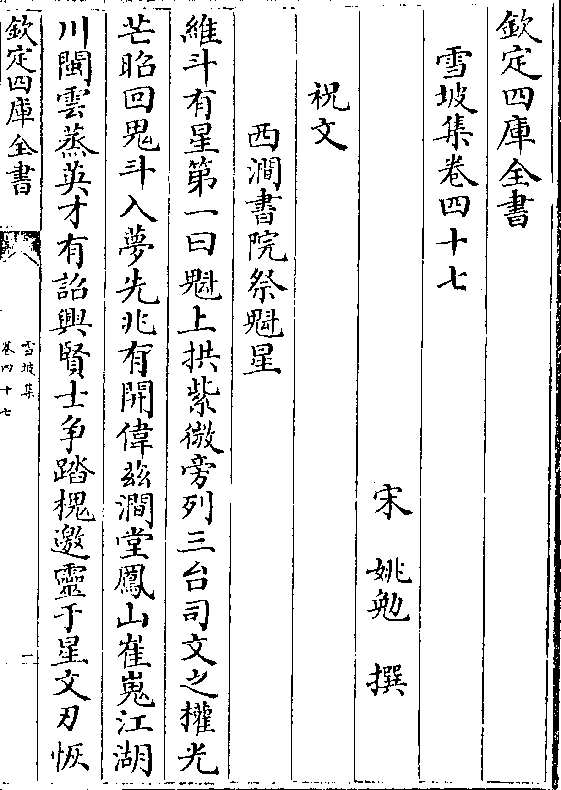 欽定四庫全書
雪坡集卷四十七
宋　姚勉　撰
祝文
西澗書院祭魁星
維斗有星第一曰魁上拱紫微旁列三台司文之權光
芒昭回鬼斗入夢先兆有開偉兹澗堂鳳山崔嵬江湖
川閩雲蒸英才有詔興賢士争踏槐邀靈于星文刃恢
欽定四庫全書
雪坡集
卷四十七
一